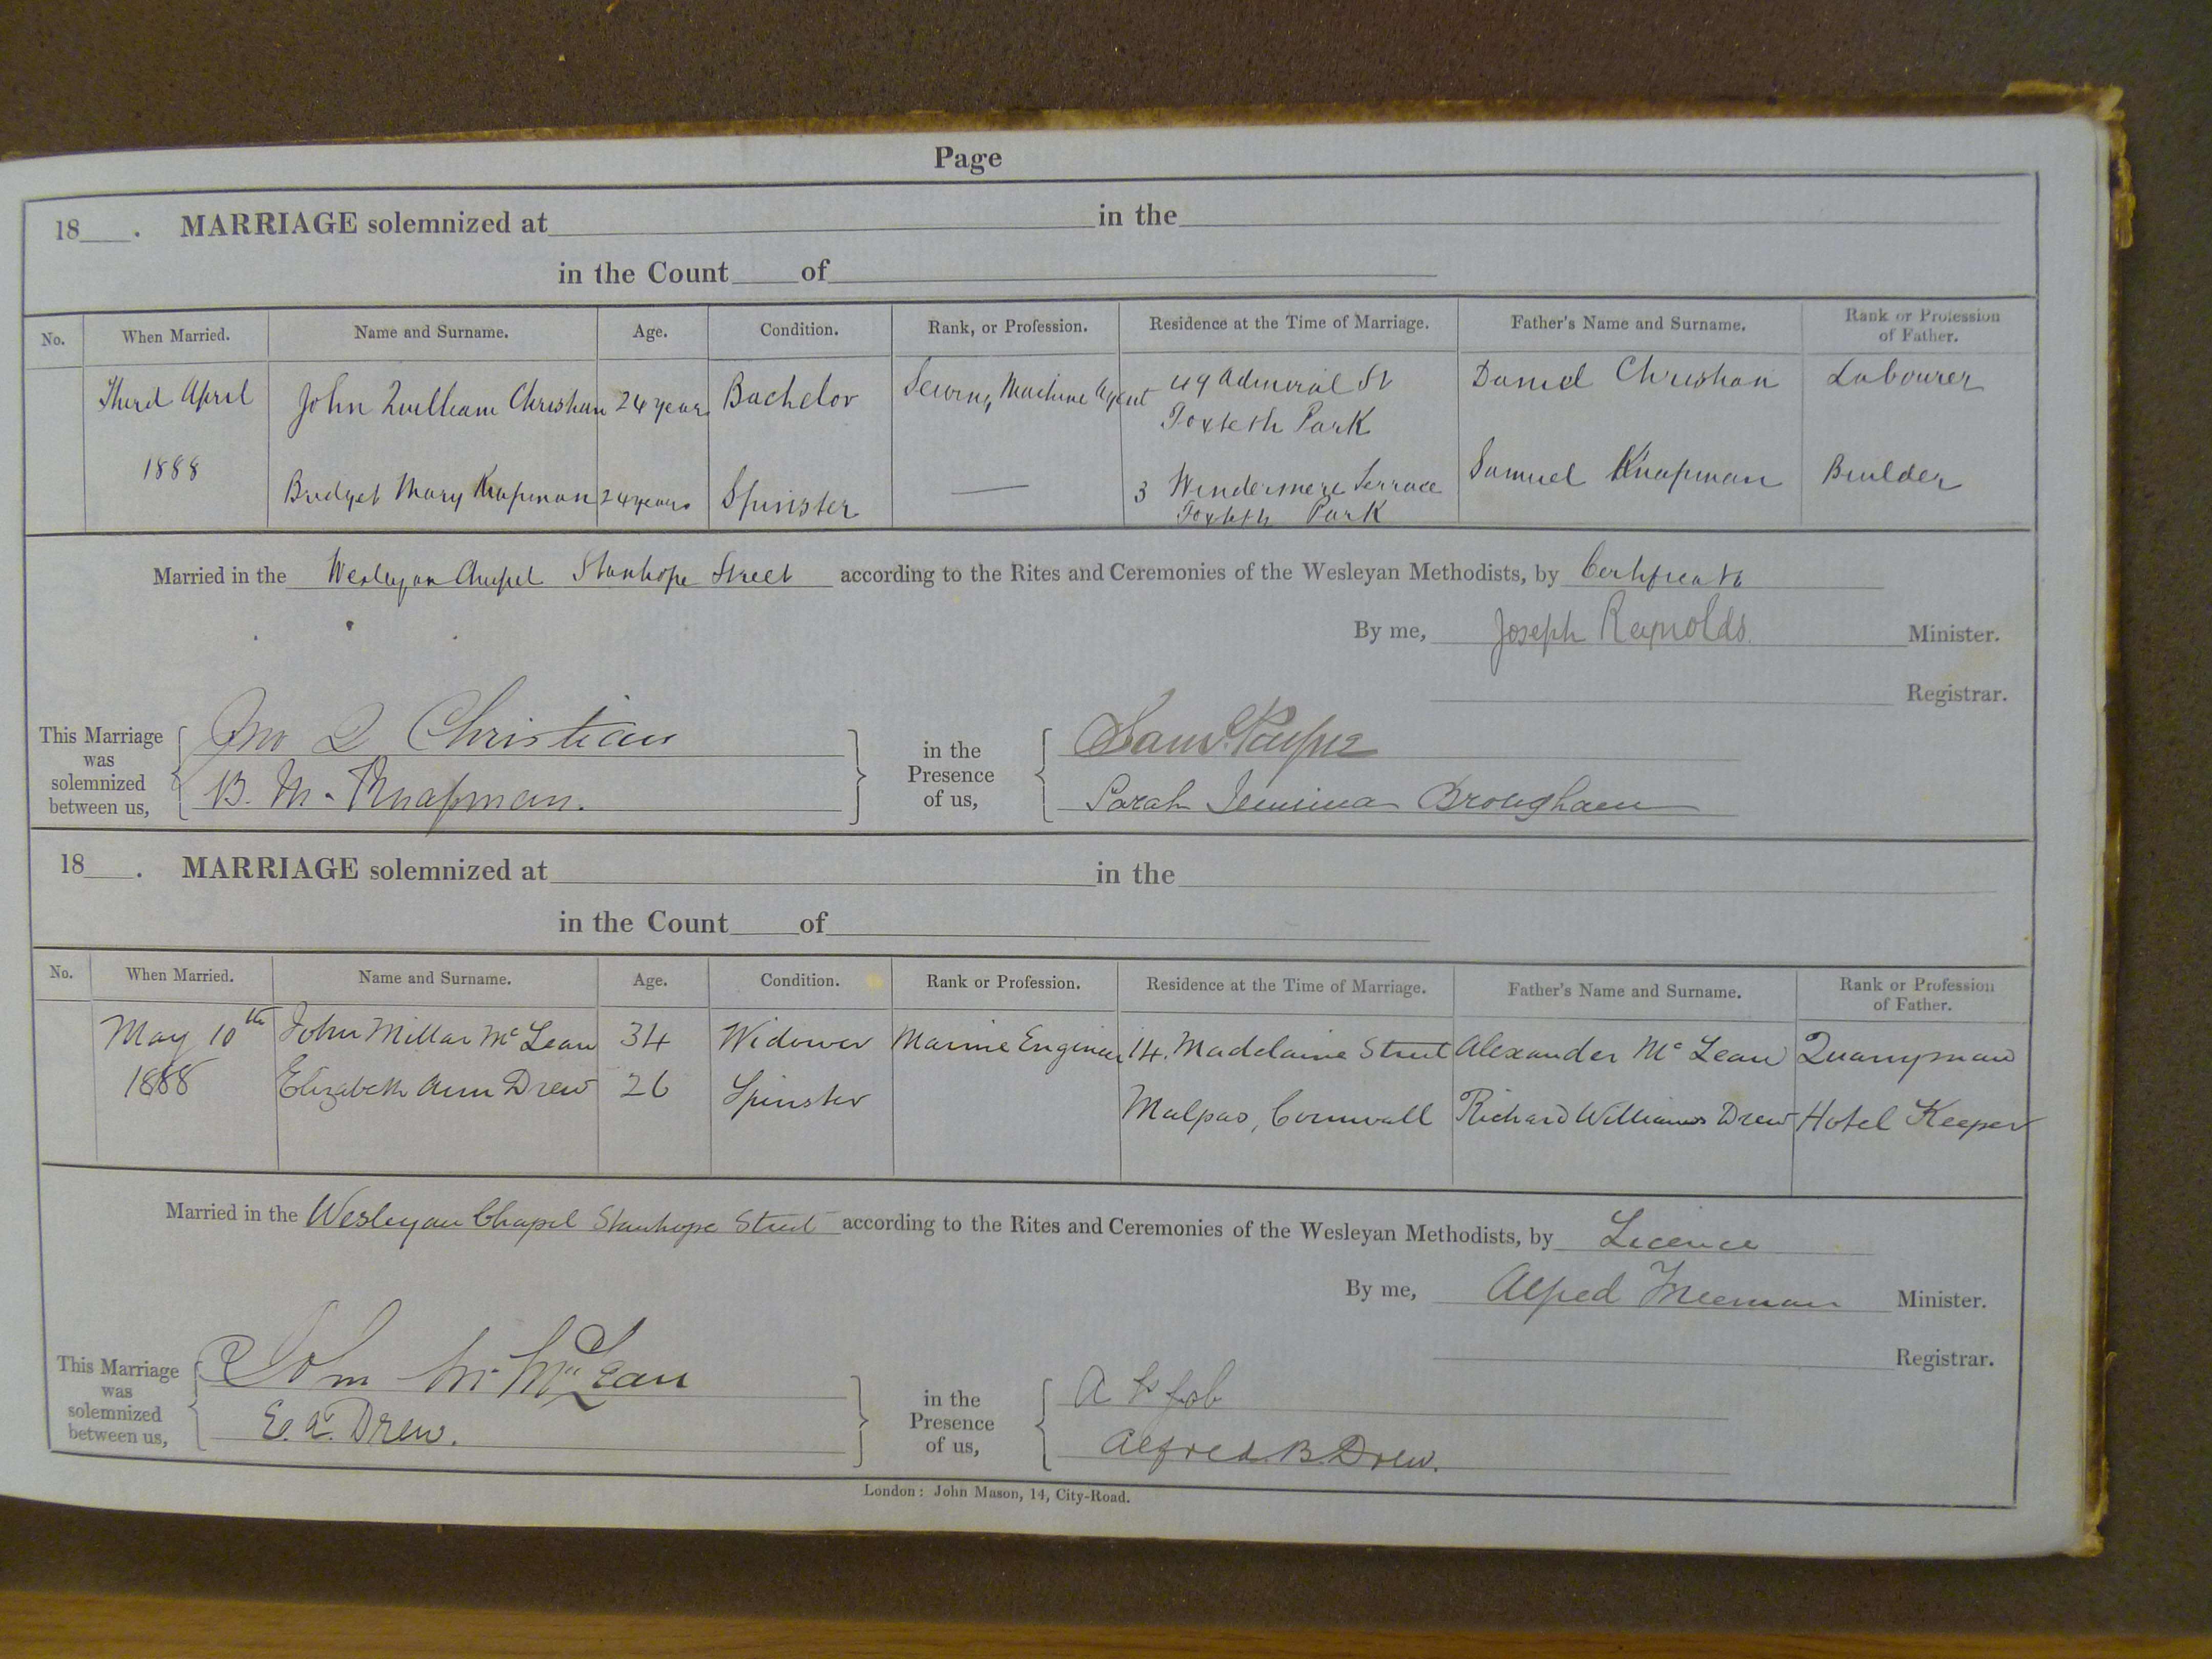 Page
18 . MARRIAGE solemnized at in the
in the Count of
No. When Married. Name and Surname. Age. Condition. Rank, or Profession. Residence at the Time of Marriage. Father's Name and Surname. Rank or Profession of Father.
Third April John Quilliam Christian 24 years Bachelor Sewing Machine Agent 49 Admiral St Daniel Christian Labourer
Toxteth Park
1888 Bridget Mary Knapman 24 years Spinster — 3 Windermere Terrace Samuel Knapman Builder
Toxteth Park
Married in the Wesleyan Chapel Stanhope Street according to the Rites and Ceremonies of the Wesleyan Methodists, by Certificate
By me, Joseph Reynolds Minister.
Registrar.
This Marriage was solemnized between us,
Jno Q Christian
B. M. Knapman.
in the Presence of us,
Sarah Jemima Brougham
18 . MARRIAGE solemnized at in the
in the Count of
No. When Married. Name and Surname. Age. Condition. Rank or Profession. Residence at the Time of Marriage. Father's Name and Surname. Rank or Profession of Father.
May 10th John Millar McLean 34 Widower Marine Engineer 14. Madelaine Street Alexander McLean Quarryman
1888 Elizabeth Ann Drew 26 Spinster Malpas, Cornwall Richard Williams Drew Hotel Keeper
Married in the Wesleyan Chapel Stanhope Street according to the Rites and Ceremonies of the Wesleyan Methodists, by Licence
By me, Alfred Freeman Minister.
Registrar.
This Marriage was solemnized between us,
John M. McLean
E. A. Drew.
in the Presence of us,
Alfred B Drew.
London: John Mason, 14, City-Road.